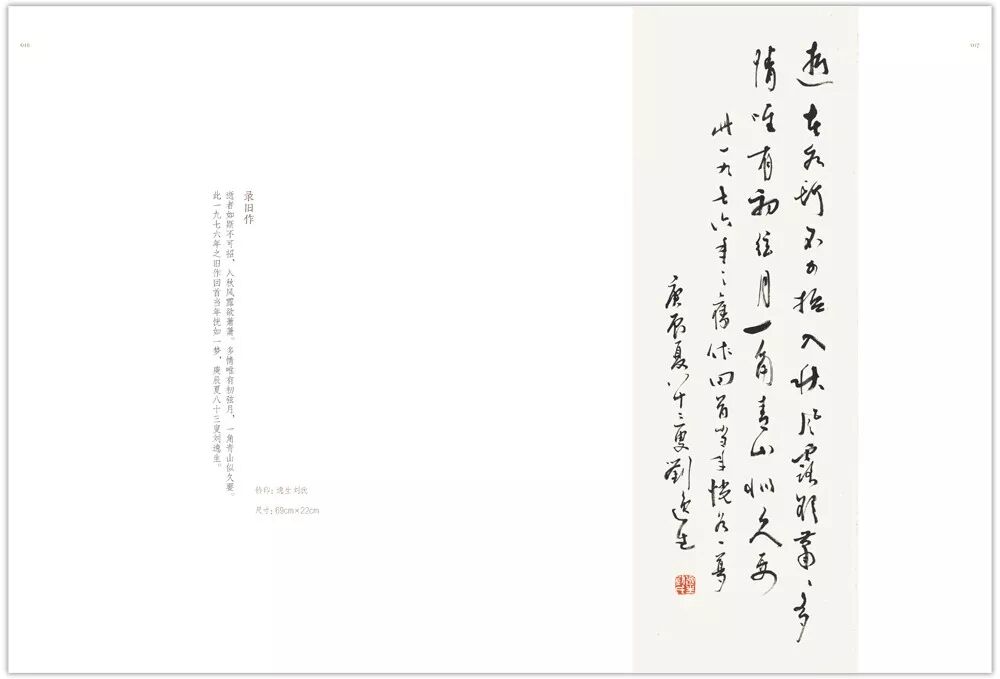 016
录旧作
逝者如斯不可招，入秋风露欲萧萧。多情唯有初弦月，一角青山似久要。
此一九七六年之旧作回首当年恍如一梦，庚辰夏八十三叟刘逸生。
钤印：逸生 刘氏
尺寸：69cm×22cm
017
逝者如斯不可招入秋風露欲蕭〻多
情唯有初弦月一角青山似久要
此一九七六年之舊作回首当年恍如一夢
庚辰夏八十三叟劉逸生